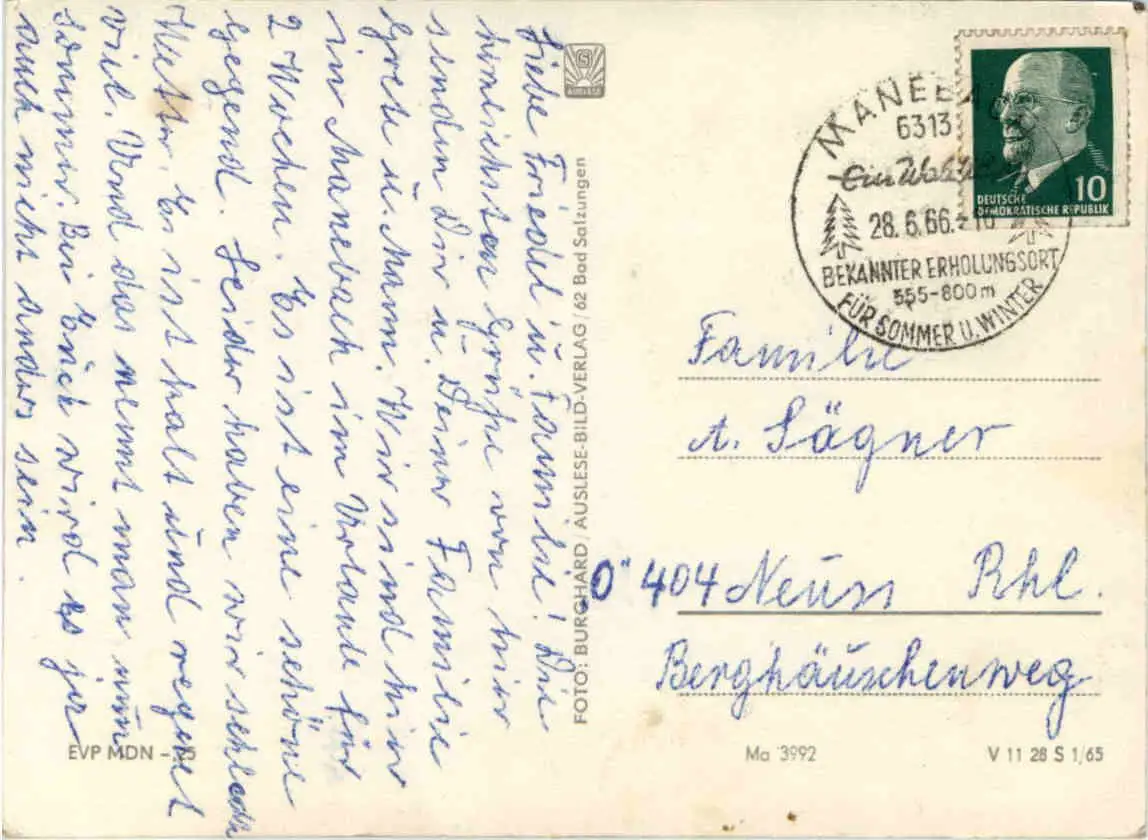 Liebe Friedel u. Familie! Die
herzlichsten Grüße von hier
senden Dir u. Deiner Familie
Grete u. Mann. Wir sind hier
in Manebach im Urlaub für
2 Wochen. Es ist eine schöne
Gegend. Leider haben wir schlecht
Wetter. Es ist kalt und regnet
viel. Und das nennt man nun
Sommer. Bei Euch wird es ja
auch nicht anders sein.
AUSLESE
FOTO: BURGHARD / AUSLESE-BILD-VERLAG / 62 Bad Salzungen
EVP MDN –.25
MANEBACH
6313
28.6.66.-16
BEKANNTER ERHOLUNGSORT
555-800 m
FÜR SOMMER U. WINTER
10
DEUTSCHE
DEMOKRATISCHE REPUBLIK
Familie
A. Sägner
404 Neuss Rhl.
Berghäuschenweg
Ma 3992
V 11 28 S 1/65